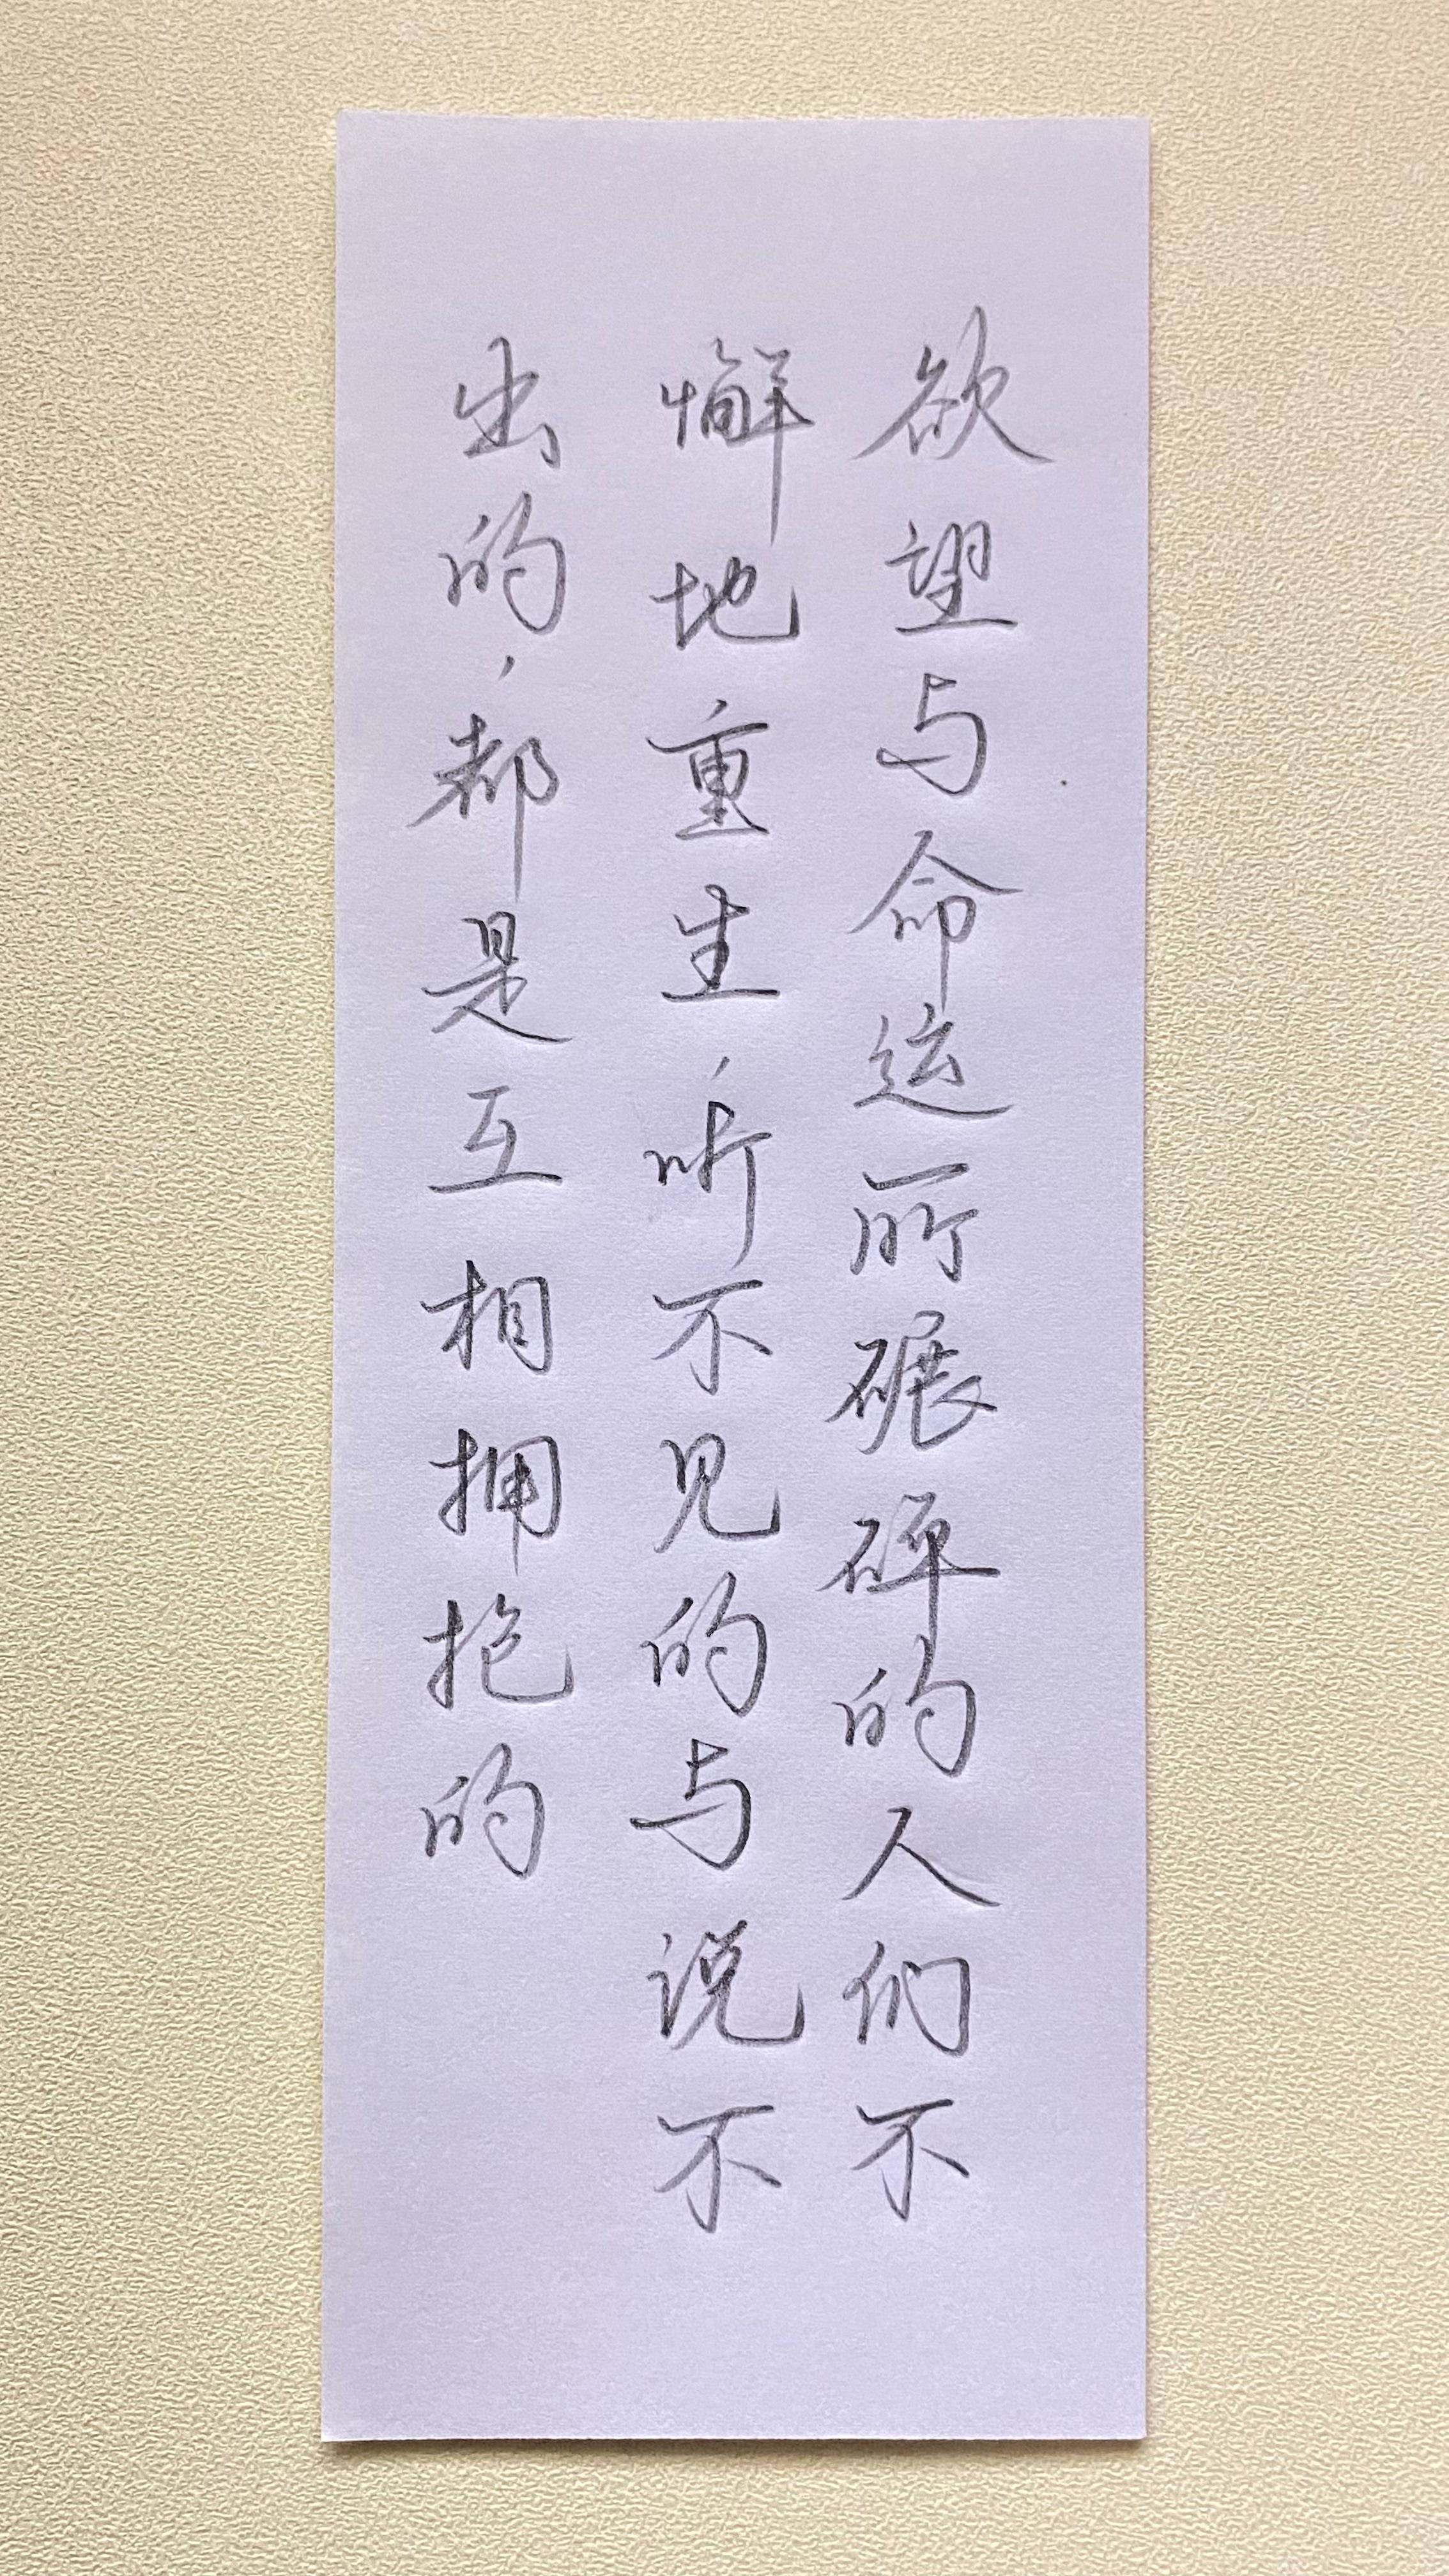 欲望与命运所碾碎的人们不
懈地重生，听不见的与说不
出的，都是互相拥抱的